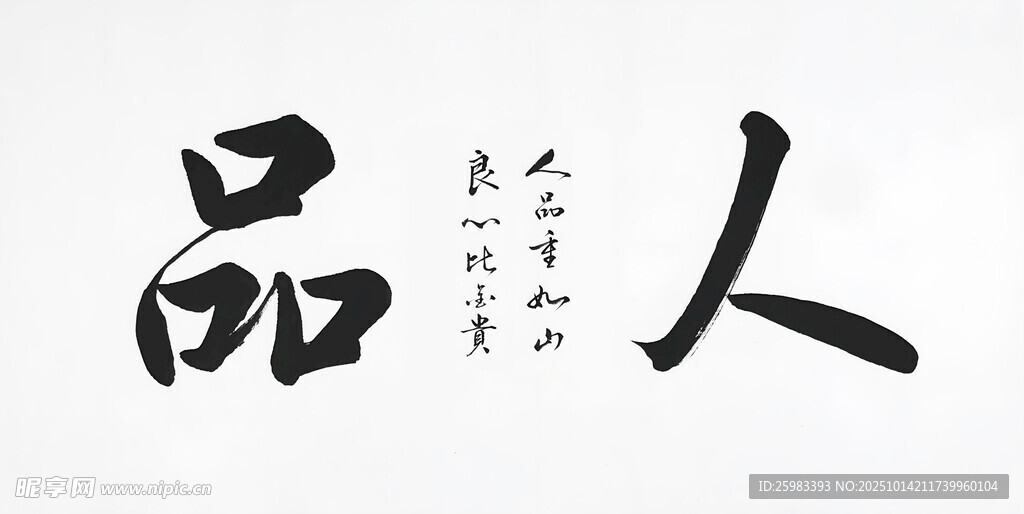 人品
人品重如山
良心比金贵
昵享网 www.nipic.cn
ID:25983393 NO:20251014211739960104